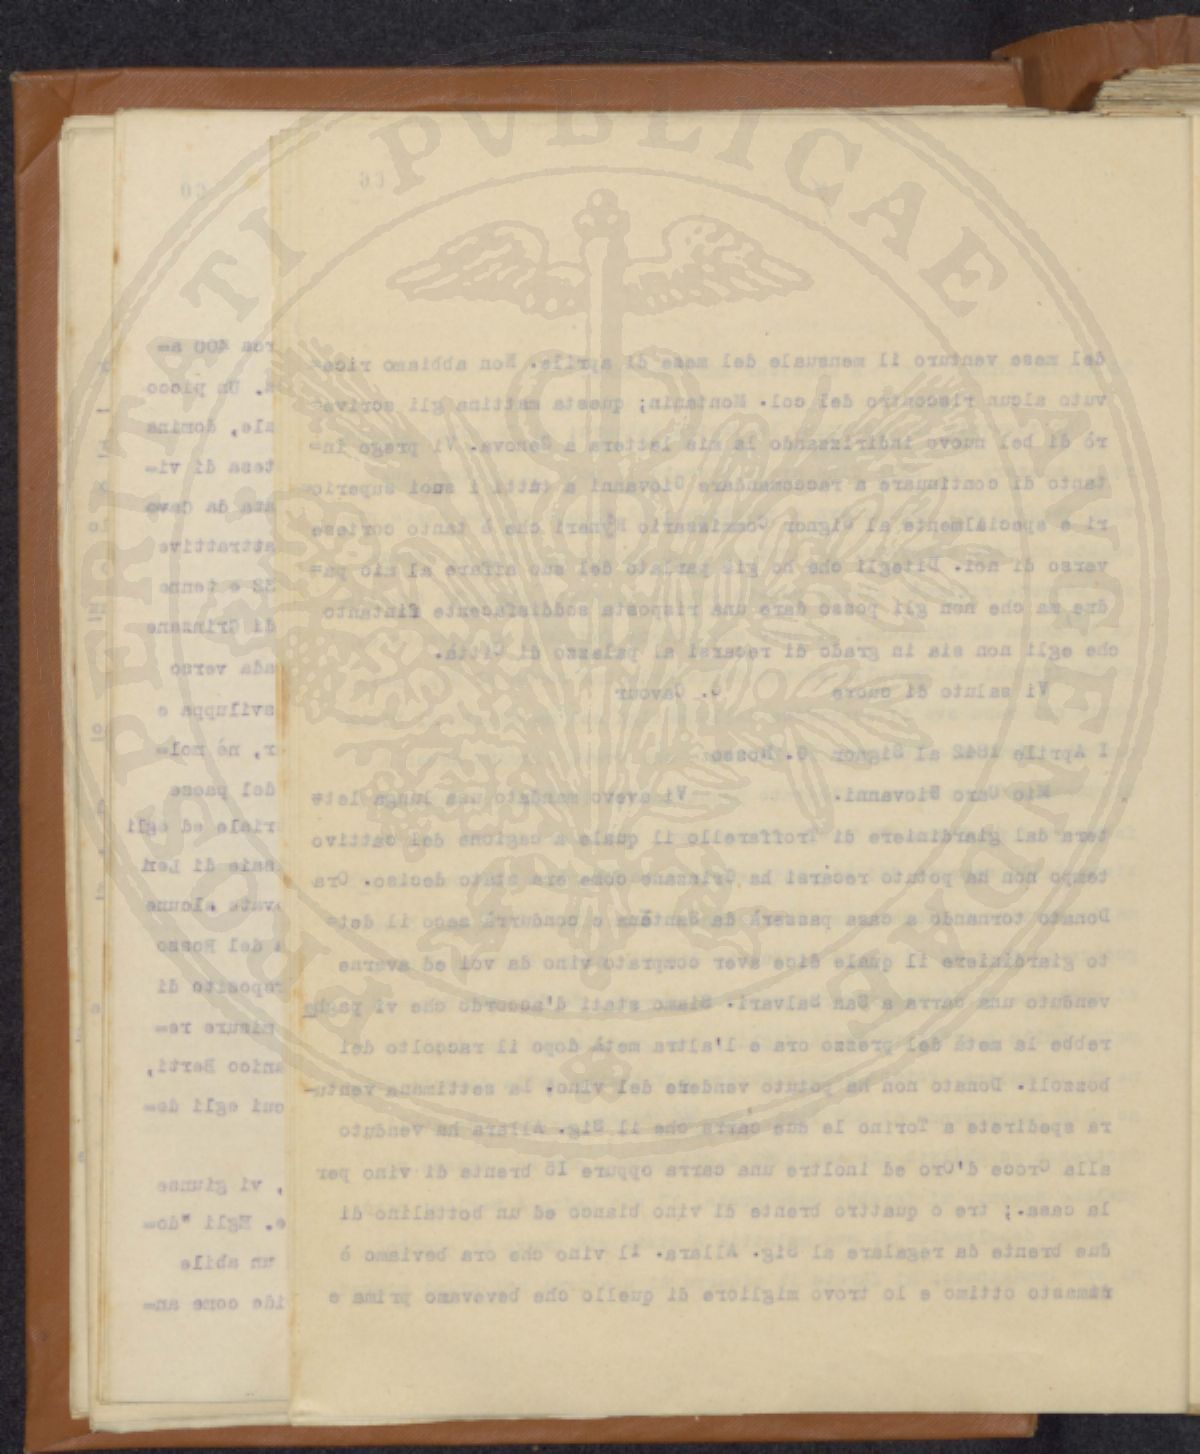 PROSPERITATI PVBLICAE AVGENDAE
del mese venturo il mensuale del mese di aprile. Non abbiamo rice=
vuto alcun riscontro del col. Montanin; questa mattina gli scrive=
rò di bel nuovo indirizzando la mia lettera a Genova. Vi prego in=
tanto di continuare a raccomandare Giovanni a tutti i suoi superio=
ri e specialmente al Signor Commissario Ryneri che è tanto cortese
verso di noi. Ditegli che ho già parlato del suo affare al mio pa=
dre ma che non gli posso dare una risposta soddisfacente fintanto
che egli non sia in grado di recarsi al palazzo di Città.
Vi saluto di cuore C. Cavour
I Aprile 1842 al Signor G. Bosso
Mio Caro Giovanni. Vi avevo mandato una lunga let=
tera dal giardiniere di Troffarello il quale a cagione del cattivo
tempo non ha potuto recarsi ha Grinzane come era stato deciso. Ora
Donato tornando a casa passerà da Santena e condurrà seco il det=
to giardiniere il quale dice aver comprato vino da voi ed averne
venduto una carra a San Salvari. Siamo stati d'accordo che vi paghe
rebbe la metà del prezzo ora e l'altra metà dopo il raccolto dei
bozzoli. Donato non ha potuto vendere del vino; la settimana ventu=
ra spedirete a Torino le due carra che il Sig. Allara ha venduto
alla Croce d'Oro ed inoltre una carra oppure 15 brenta di vino per
la casa.; tre o quattro brente di vino bianco ed un bottalino di
due brente da regalare al Sig. Allara. Il vino che ora beviamo è
rimasto ottimo e lo trovo migliore di quello che bevevamo prima e
rca 400 a=
. Un picco
ale, domina
tesa di vi=
ata da Cavo
attrattive
32 e tenne
di Grinzane
ada verso
sviluppa e
r, nè mol=
del paese
riale ed egli
nale di Leri
ovate alcune
a del Rosso
roposito di
minure re=
anico Berti,
cui egli do=
, vi giunse
e. Egli "do=
un abile
ide come an=